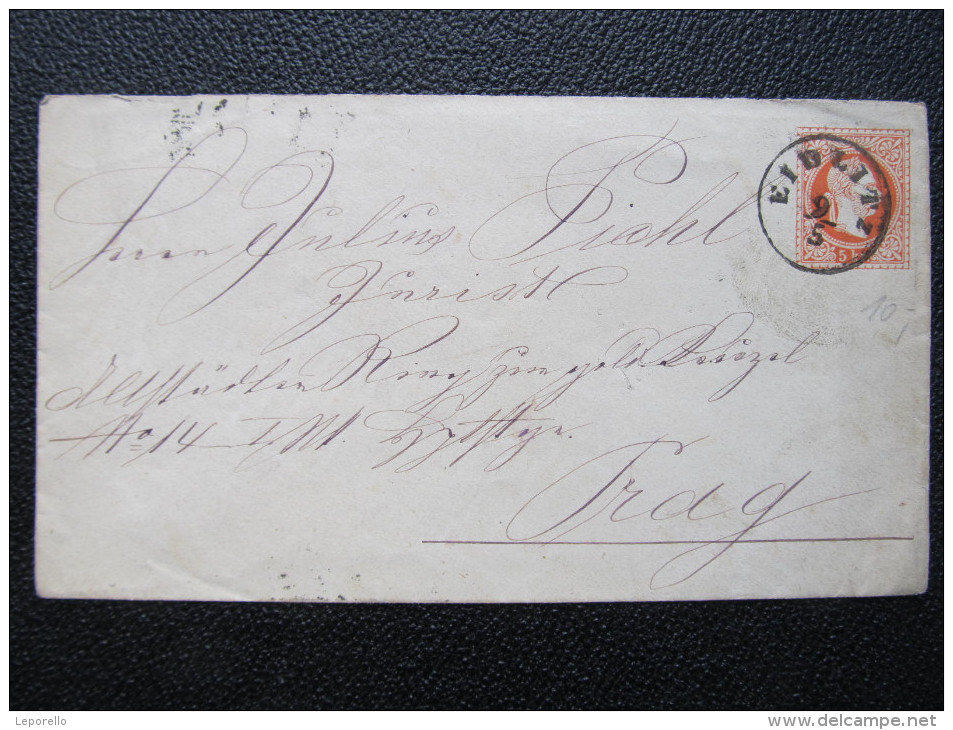 EIDLITZ
9/5
5
10,-
Herrn Julius Pichl
Jurist
Altstädter Ring zum gold.
No 14 I/M
Prag
Leporello
www.delcampe.net